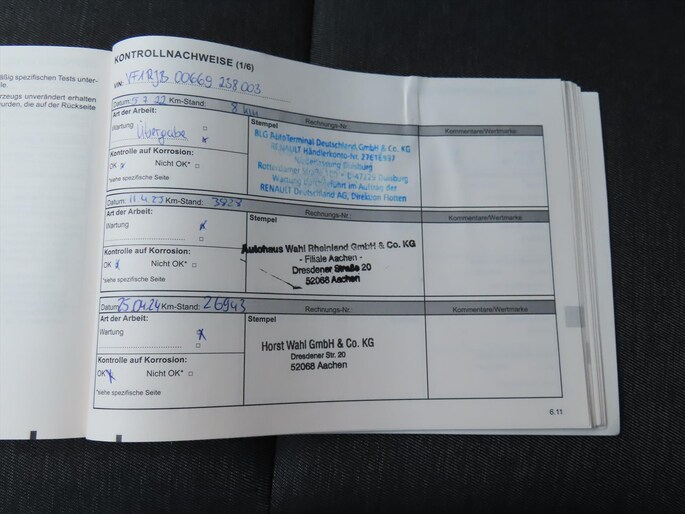 äßig spezifischen Tests unter-
rzeugs unverändert erhalten
wurden, die auf der Rückseite
KONTROLLNACHWEISE (1/6)
VIN: VF1RJB 00669 238 003
Datum: 5.7.22 Km-Stand: 8 km Rechnungs-Nr.:
Art der Arbeit: Stempel Kommentare/Wertmarke
Wartung
Übergabe
Kontrolle auf Korrosion:
OK Nicht OK*
*siehe spezifische Seite
BLG AutoTerminal Deutschland GmbH & Co. KG
RENAULT Händlerkonto-Nr. 27616937
Niederlassung Duisburg
D-47229 Duisburg
Wartung durchgeführt im Auftrag der
RENAULT Deutschland AG, Direktion Flotten
Datum: 11.4.23 Km-Stand: 3828 Rechnungs-Nr.: Kommentare/Wertmarke
Art der Arbeit: Stempel
Wartung
Kontrolle auf Korrosion:
OK Nicht OK*
*siehe spezifische Seite
Autohaus Wahl Rheinland GmbH & Co. KG
- Filiale Aachen -
Dresdener Straße 20
52068 Aachen
Datum: 25.04.24 Km-Stand: 26943 Rechnungs-Nr.: Kommentare/Wertmarke
Art der Arbeit: Stempel
Wartung
Kontrolle auf Korrosion:
OK Nicht OK*
*siehe spezifische Seite
Horst Wahl GmbH & Co. KG
Dresdener Str. 20
52068 Aachen
6.11